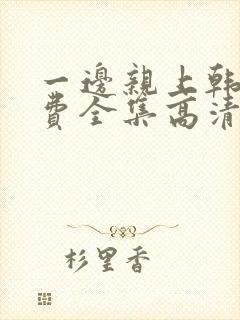 一邊親上韩
费全集高清
杉里香